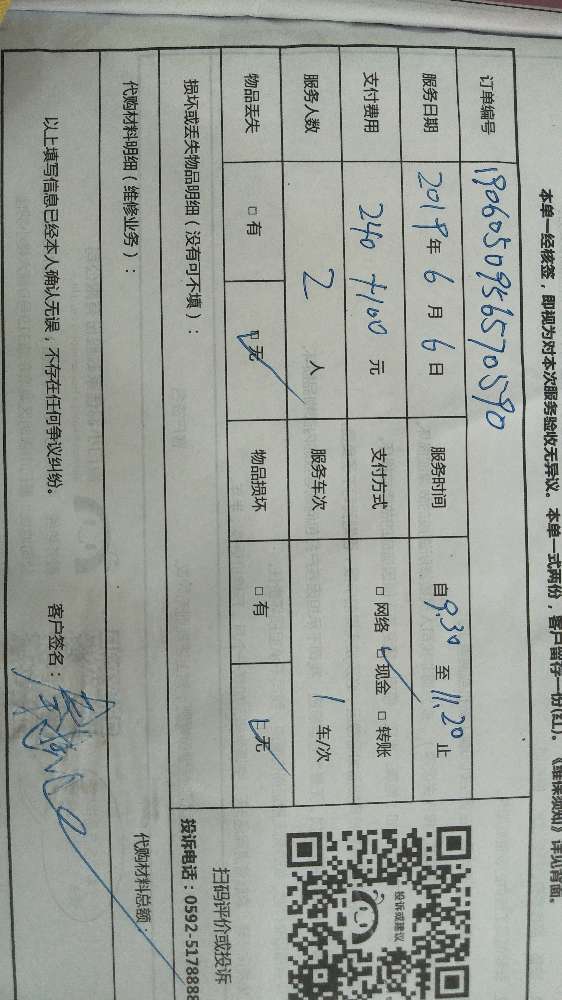 本单一经核签，即视为对本次服务验收无异议。本单一式两份，客户留存一份(红)。《维保须知》详见背面。
订单编号 1906050956570590
服务日期 2019年 6 月 6 日 服务时间 自 9.30 至 11.20 止
支付费用 240+100 元 支付方式 □ 网络 □ 现金 □ 转账
服务人数 2 人 服务车次 1 车/次
物品丢失 □ 有 □ 无 物品损坏 □ 有 □ 无
损坏或丢失物品明细（没有可不填）：
投诉或建议
扫码评价或投诉
投诉电话：0592-5178888
代购材料明细（维修业务）：
代购材料总额：
以上填写信息已经本人确认无误，不存在任何争议纠纷。 客户签名：